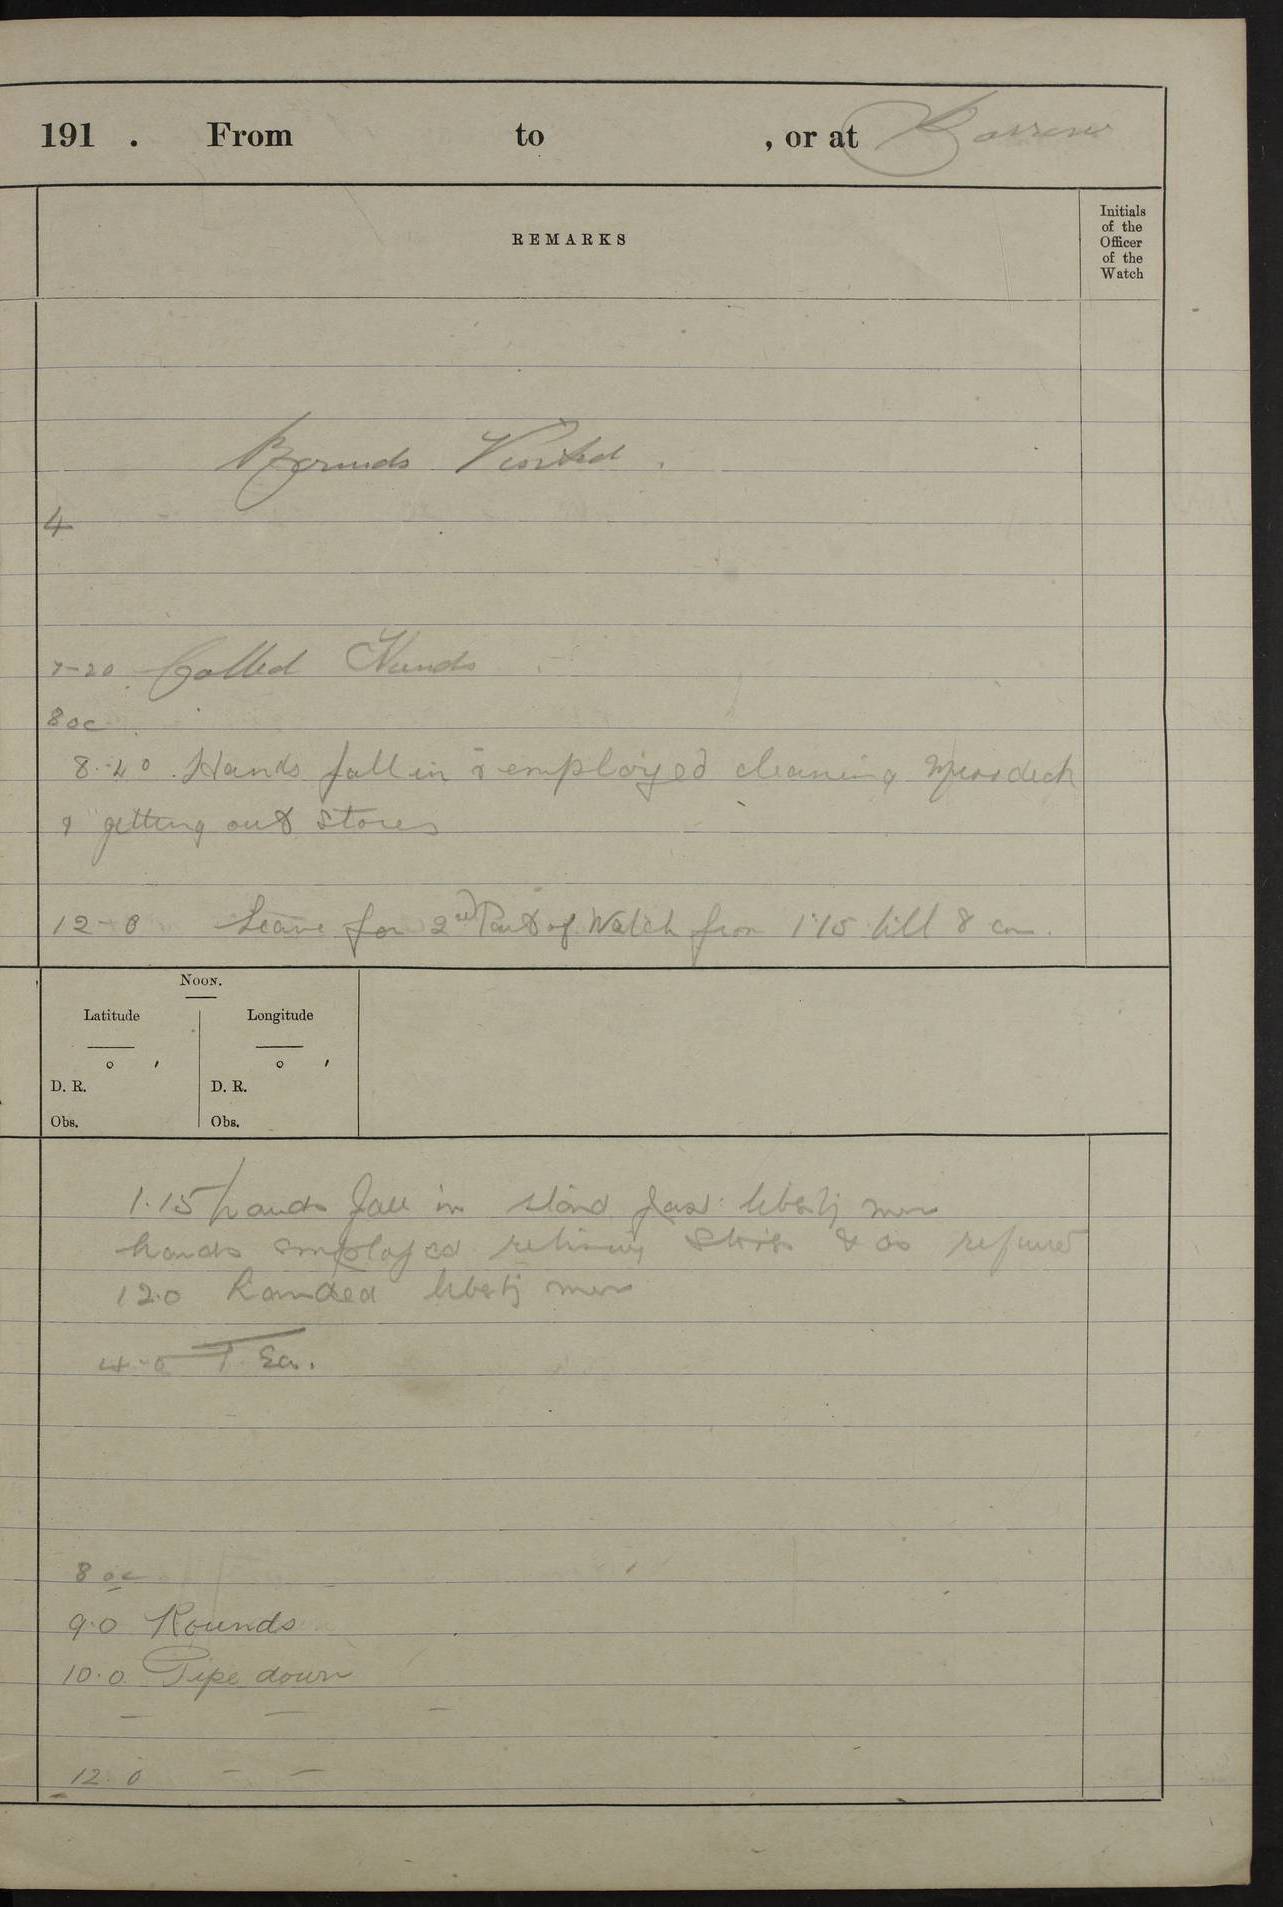 191 . From to , or at Barrow
REMARKS
Initials
of the
Officer
of the
Watch
Visited
4
7-20 Called Hands
8 oc
8.20 Hands fall in & employed cleaning messdeck
& getting out stores
12-0 Leave for 2nd Part of Watch from 1.15 till 8 am.
NOON.
Latitude Longitude
° ′ ° ′
D. R. D. R.
Obs. Obs.
1.15 hands fall in stand fast liberty men
hands employed stores & as required
12.0 Landed liberty men
4-0 Tea.
8 oc
9.0 Rounds
10.0 Pipe down
12.0